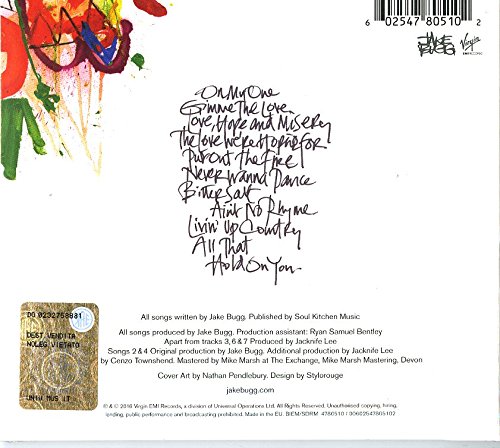 6 02547 80510 2
JAKE BUGG
Virgin
On My One
Gimme The Love
Love, Hope and Misery
The Love We're Hoping For
Put Out The Fire
Never Wanna Dance
Bitter Salt
Ain't No Rhyme
Livin' Up Country
All That
Hold On You
All songs written by Jake Bugg. Published by Soul Kitchen Music
All songs produced by Jake Bugg. Production assistant: Ryan Samuel Bentley
Apart from tracks 3, 6 & 7 Produced by Jacknife Lee
Songs 2 & 4 Original production by Jake Bugg. Additional production by Jacknife Lee
by Cenzo Townshend. Mastered by Mike Marsh at The Exchange, Mike Marsh Mastering, Devon
Cover Art by Nathan Pendlebury. Design by Stylorouge
jakebugg.com
℗ & © 2016 Virgin EMI Records, a division of Universal Operations Ltd. All Rights Reserved. Unauthorised copying, hiring,
lending, public performance and broadcasting prohibited. Made in the EU. BIEM/SDRM 4780510 / 00602547805102
DG 0232758831
DEST.VENDITA
NOLEG.VIETATO
UNIV MUS IT